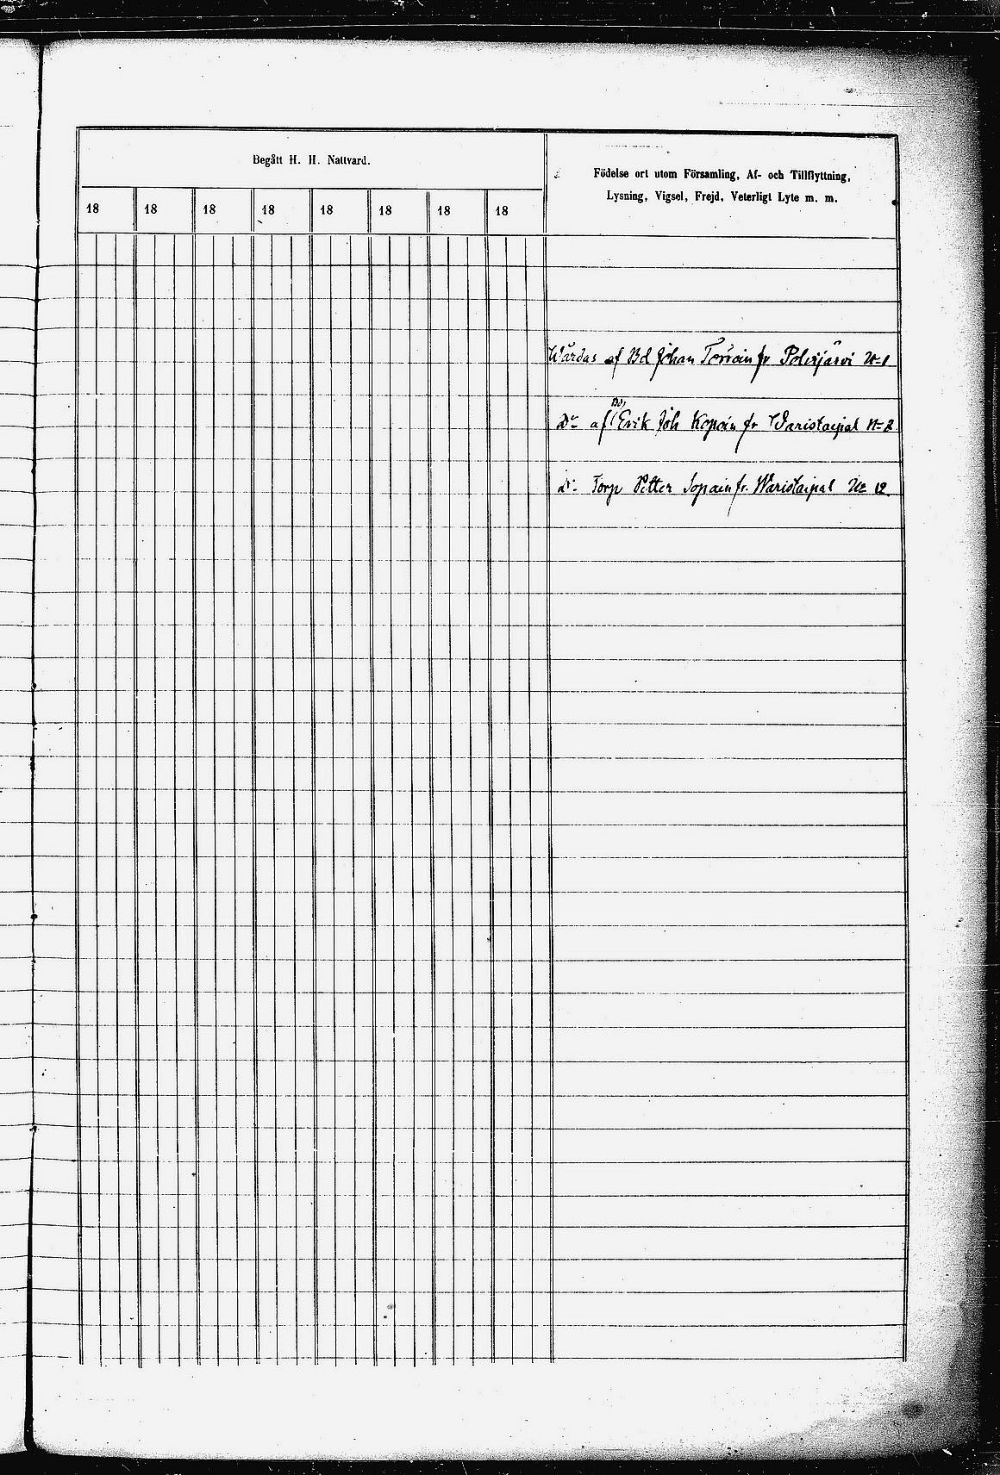 Begått H. H. Nattvard.
Födelse ort utom Församling, Af- och Tillflyttning,
Lysning, Vigsel, Frejd, Veterligt Lyte m. m.
18 18 18 18 18 18 18 18
Wårdas af Bd Johan Törröin fr Polvijärvi N=1
Bd
Do af Erik Joh Kopoin fr Varistaipal N=2
Do Torp Petter Sopain fr. Waristaipal No 12